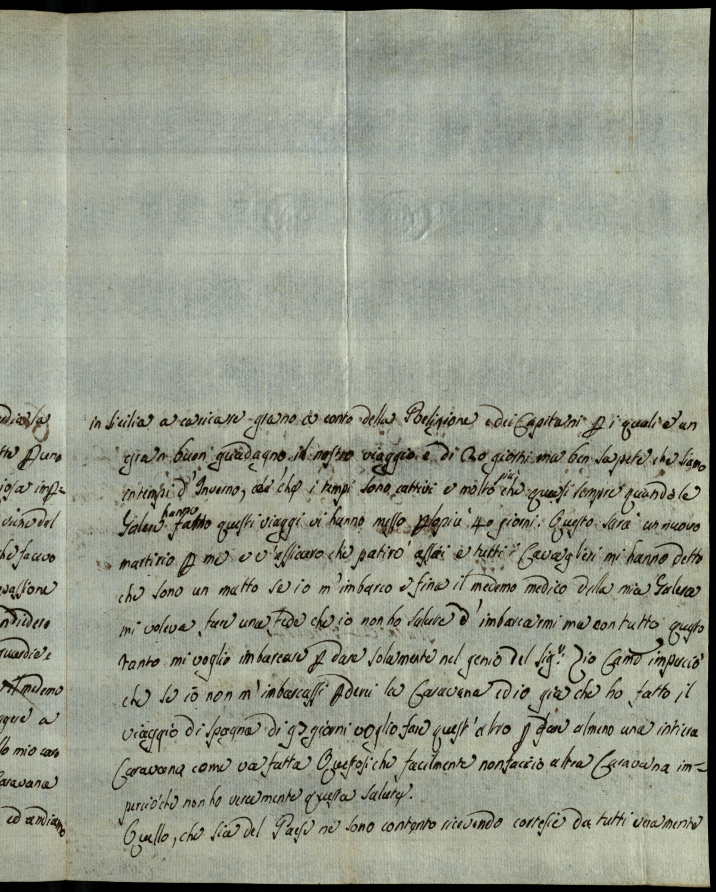 in Sicilia a caricare grano à conto della Religione e dei Capitani p i quali è un
gran buon guadagno, il nostro viaggio è di 20 giorni ma ben sapete che siamo
in tempi d'Inverno, che i tempi sono cattivi e molto più che quasi sempre quando le
Galere hanno fatto questi viaggi vi hanno messo p lo più 40 giorni. Questo sarà un nuovo
martirio p me e v'assicuro che patirò assai e tutti i Cavaglieri mi hanno detto
che sono un matto se io m'imbarco e fina il medemo medico della mia Galera
mi voleva fare una Fede che io non ho salute d'imbarcarmi ma con tutto questo
tanto mi voglio imbarcare p dare solamente nel genio del Sigr. Zio impercio
che se io non m'imbarcassi p derei la Caravana ed io già che ho fatto il
viaggio di Spagna di 97 giorni voglio fare quest'altro p far almeno una intiera
Caravana come va fatta Questo si che facilmente non faccio altra Caravana im=
perciòche non ho veramente questa salute.
Quello, che sia del Paese ne sono contento ricevendo cortesie da tutti veramente
dicasa
p uno
che facevo
passione
n sidero
guardie e
il medemo
gere a
lo mio caro
Caravana
ed andiamo